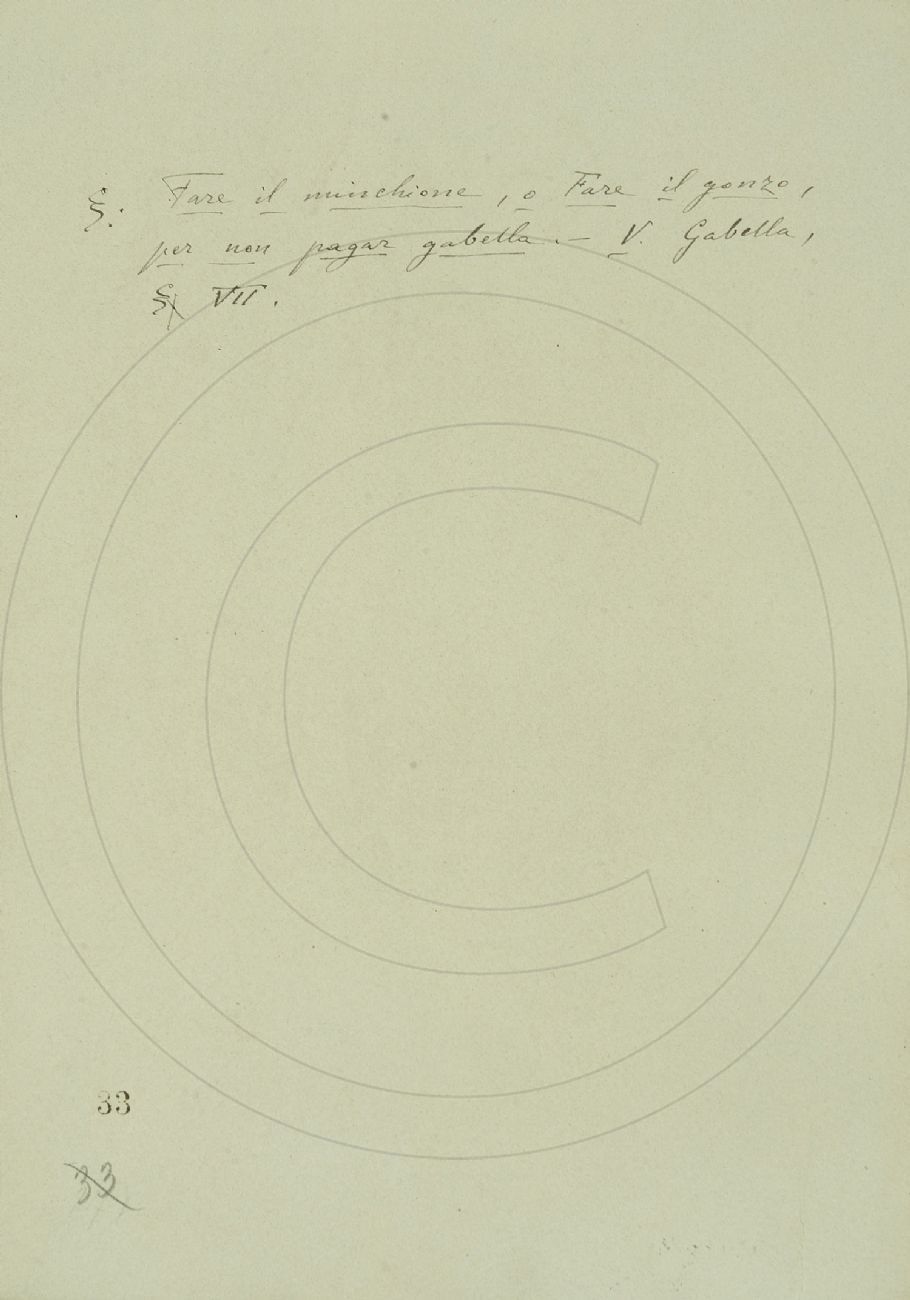 §. Fare il minchione, o Fare il gonzo,
per non pagar gabella. – V. Gabella,
§ VII.
33
33